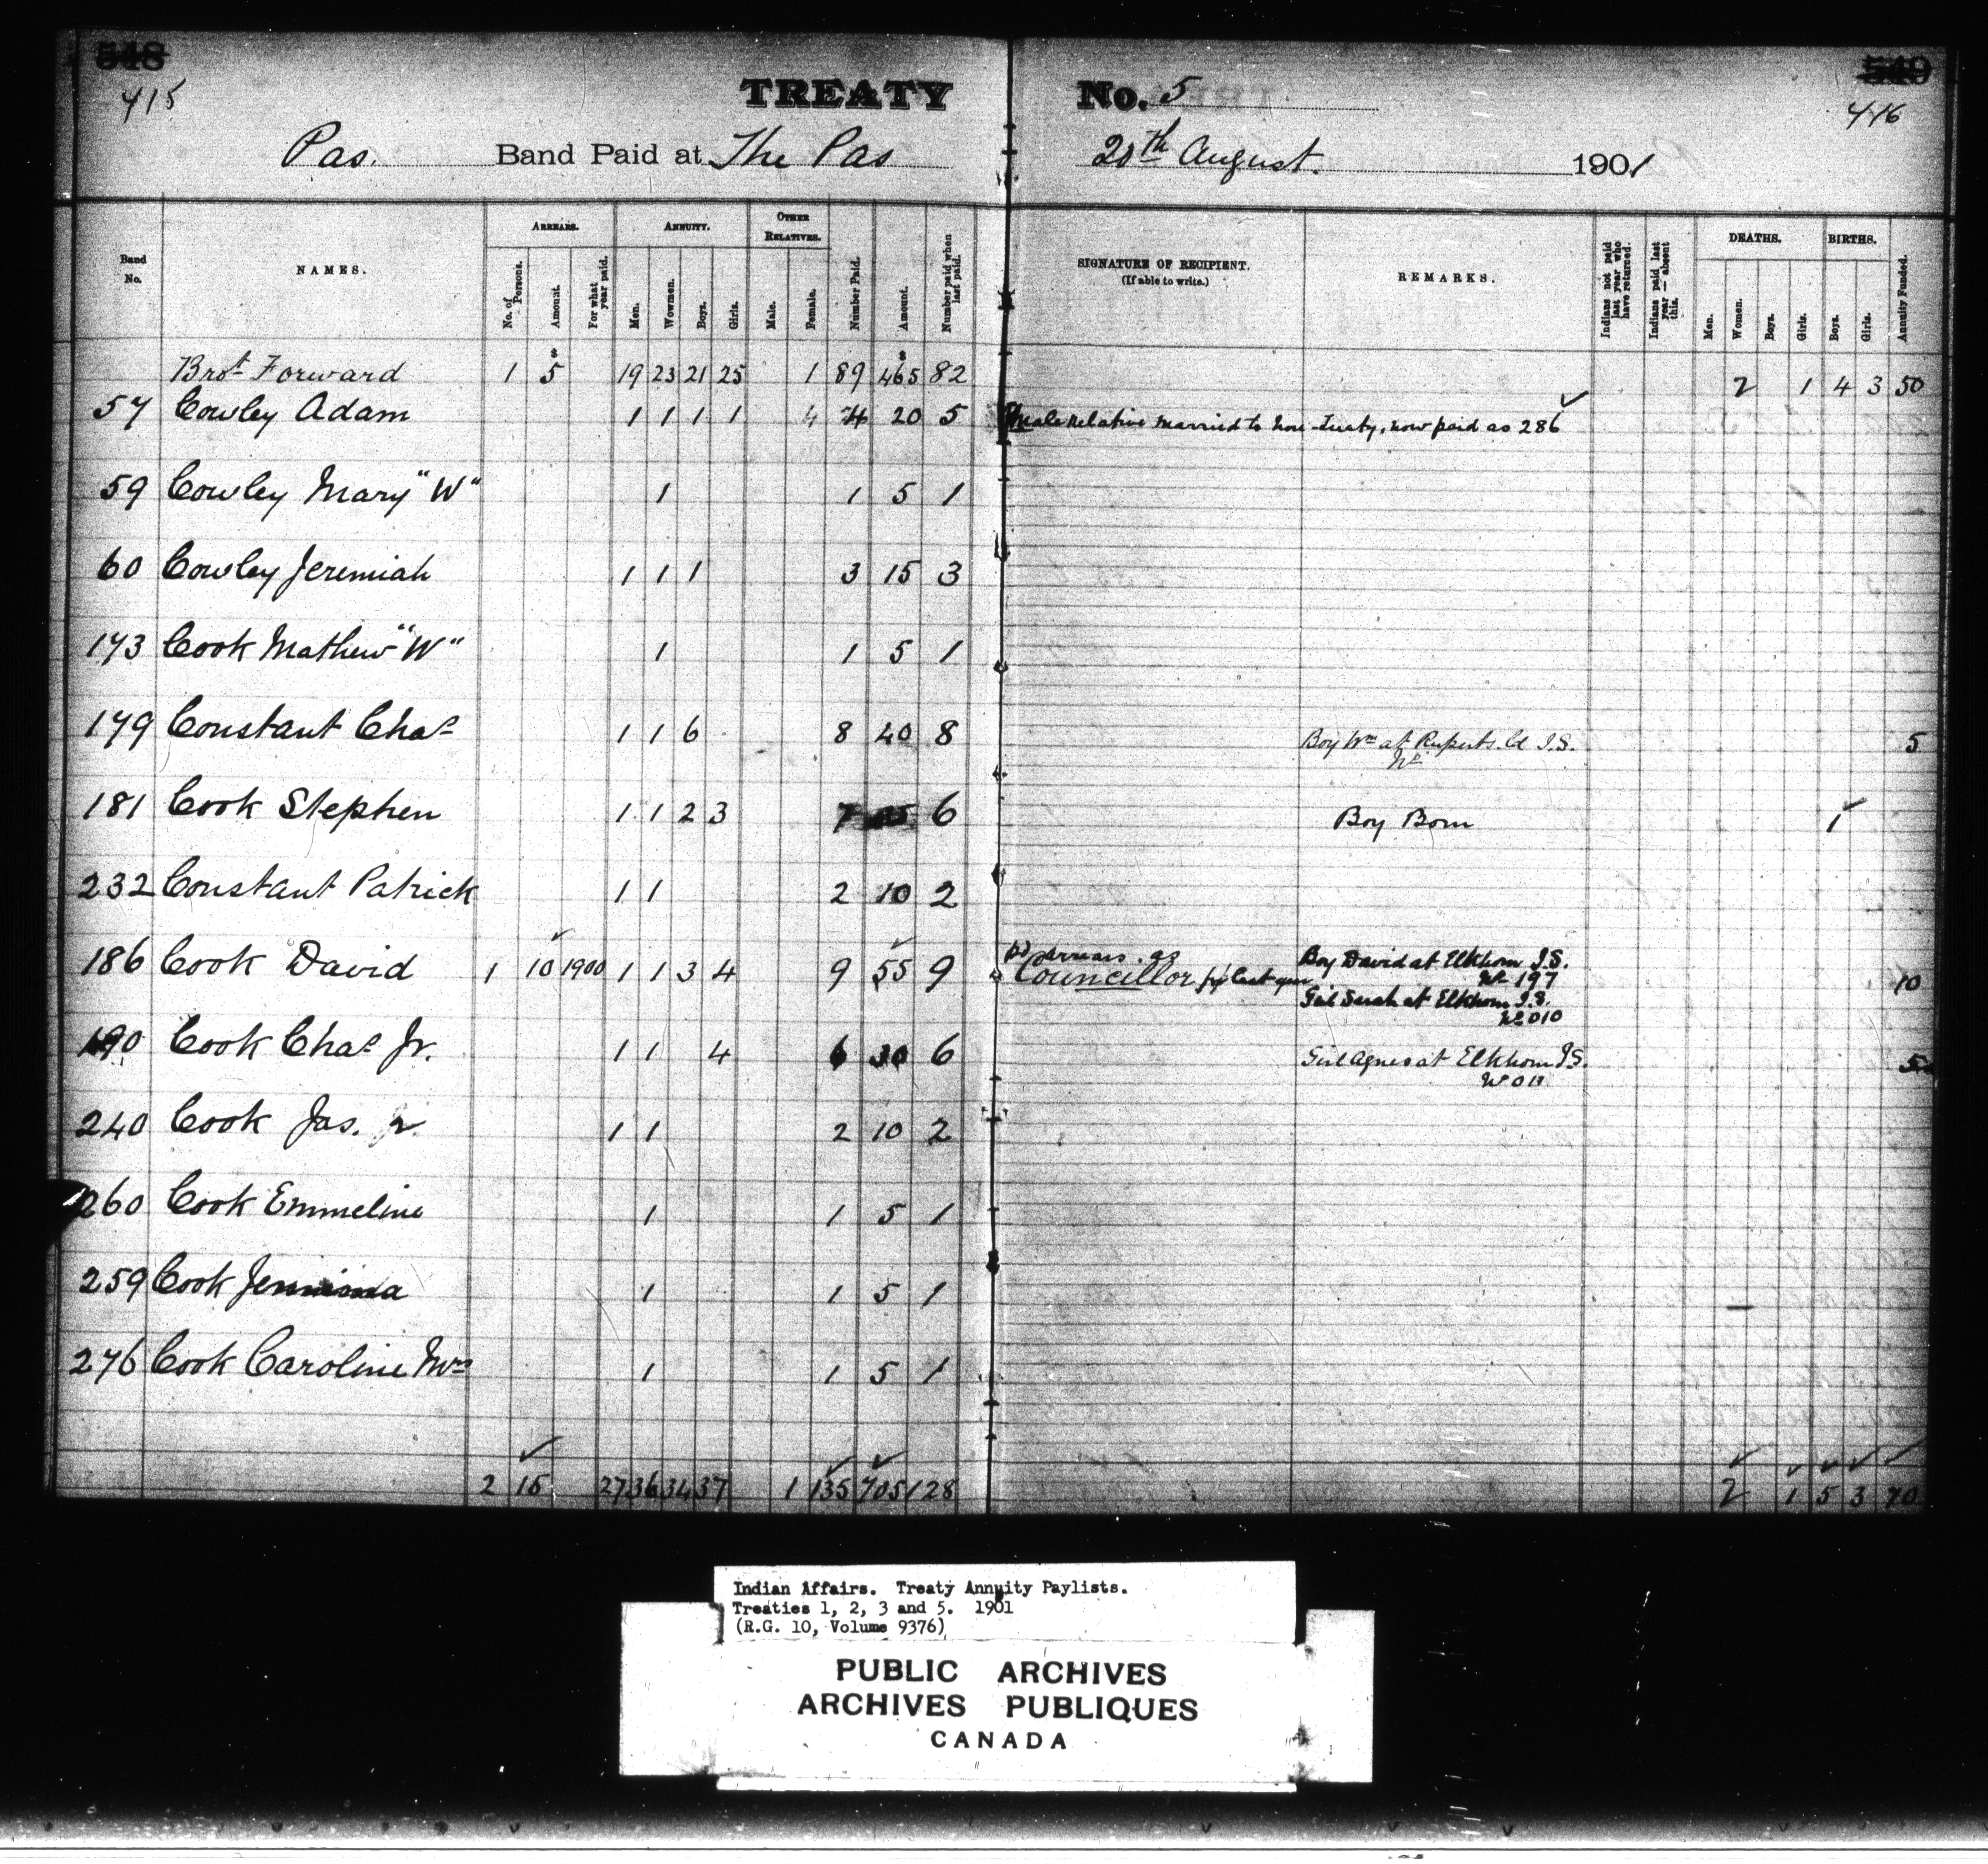 548
549
415
416
TREATY No. 5
Pas. Band Paid at The Pas 20th August. 1901
Band No.
NAMES.
ARREARS.
No. of Persons.
Amount.
For what year paid.
ANNUITY.
Men.
Women.
Boys.
Girls.
OTHER RELATIVES.
Male.
Female.
Number Paid.
Amount.
Number paid when last paid.
SIGNATURE OF RECIPIENT.
(If able to write.)
REMARKS.
Indians not paid last year who have returned.
Indians paid last year — absent this.
DEATHS.
Men.
Women.
Boys.
Girls.
BIRTHS.
Boys.
Girls.
Annuity Funded.
Brot Forward 1 5 19 23 21 25 1 89 465 82 2 1 4 3 50
57 Cowley Adam 1 1 1 1 4 20 5 Male Relative married to non-treaty, now paid as 286
59 Cowley Mary "W" 1 1 5 1
60 Cowley Jeremiah 1 1 1 3 15 3
173 Cook Mathew "W" 1 1 5 1
179 Constant Chas 1 1 6 8 40 8 Boy Wm at Ruperts. Ld I.S. 5
No
181 Cook Stephen 1 1 2 3 7 35 6 Boy Born 1
232 Constant Patrick 1 1 2 10 2
186 Cook David 1 10 1900 1 1 3 4 9 55 9 arrears as Councillor for last year Boy David at Elkhorn I.S. 10
No 197
Girl Sarah at Elkhorn I.S.
No 010
190 Cook Chas Jr. 1 1 4 6 30 6 Girl Agnes at Elkhorn I.S. 5
No 011
240 Cook Jas. Jr. 1 1 2 10 2
260 Cook Emmeline 1 1 5 1
259 Cook Jemima 1 1 5 1
276 Cook Caroline Mrs 1 1 5 1
2 15 27 36 34 37 1 135 705 128 2 1 5 3 70
Indian Affairs. Treaty Annuity Paylists.
Treaties 1, 2, 3 and 5. 1901
(R.G. 10, Volume 9376)
PUBLIC ARCHIVES
ARCHIVES PUBLIQUES
CANADA